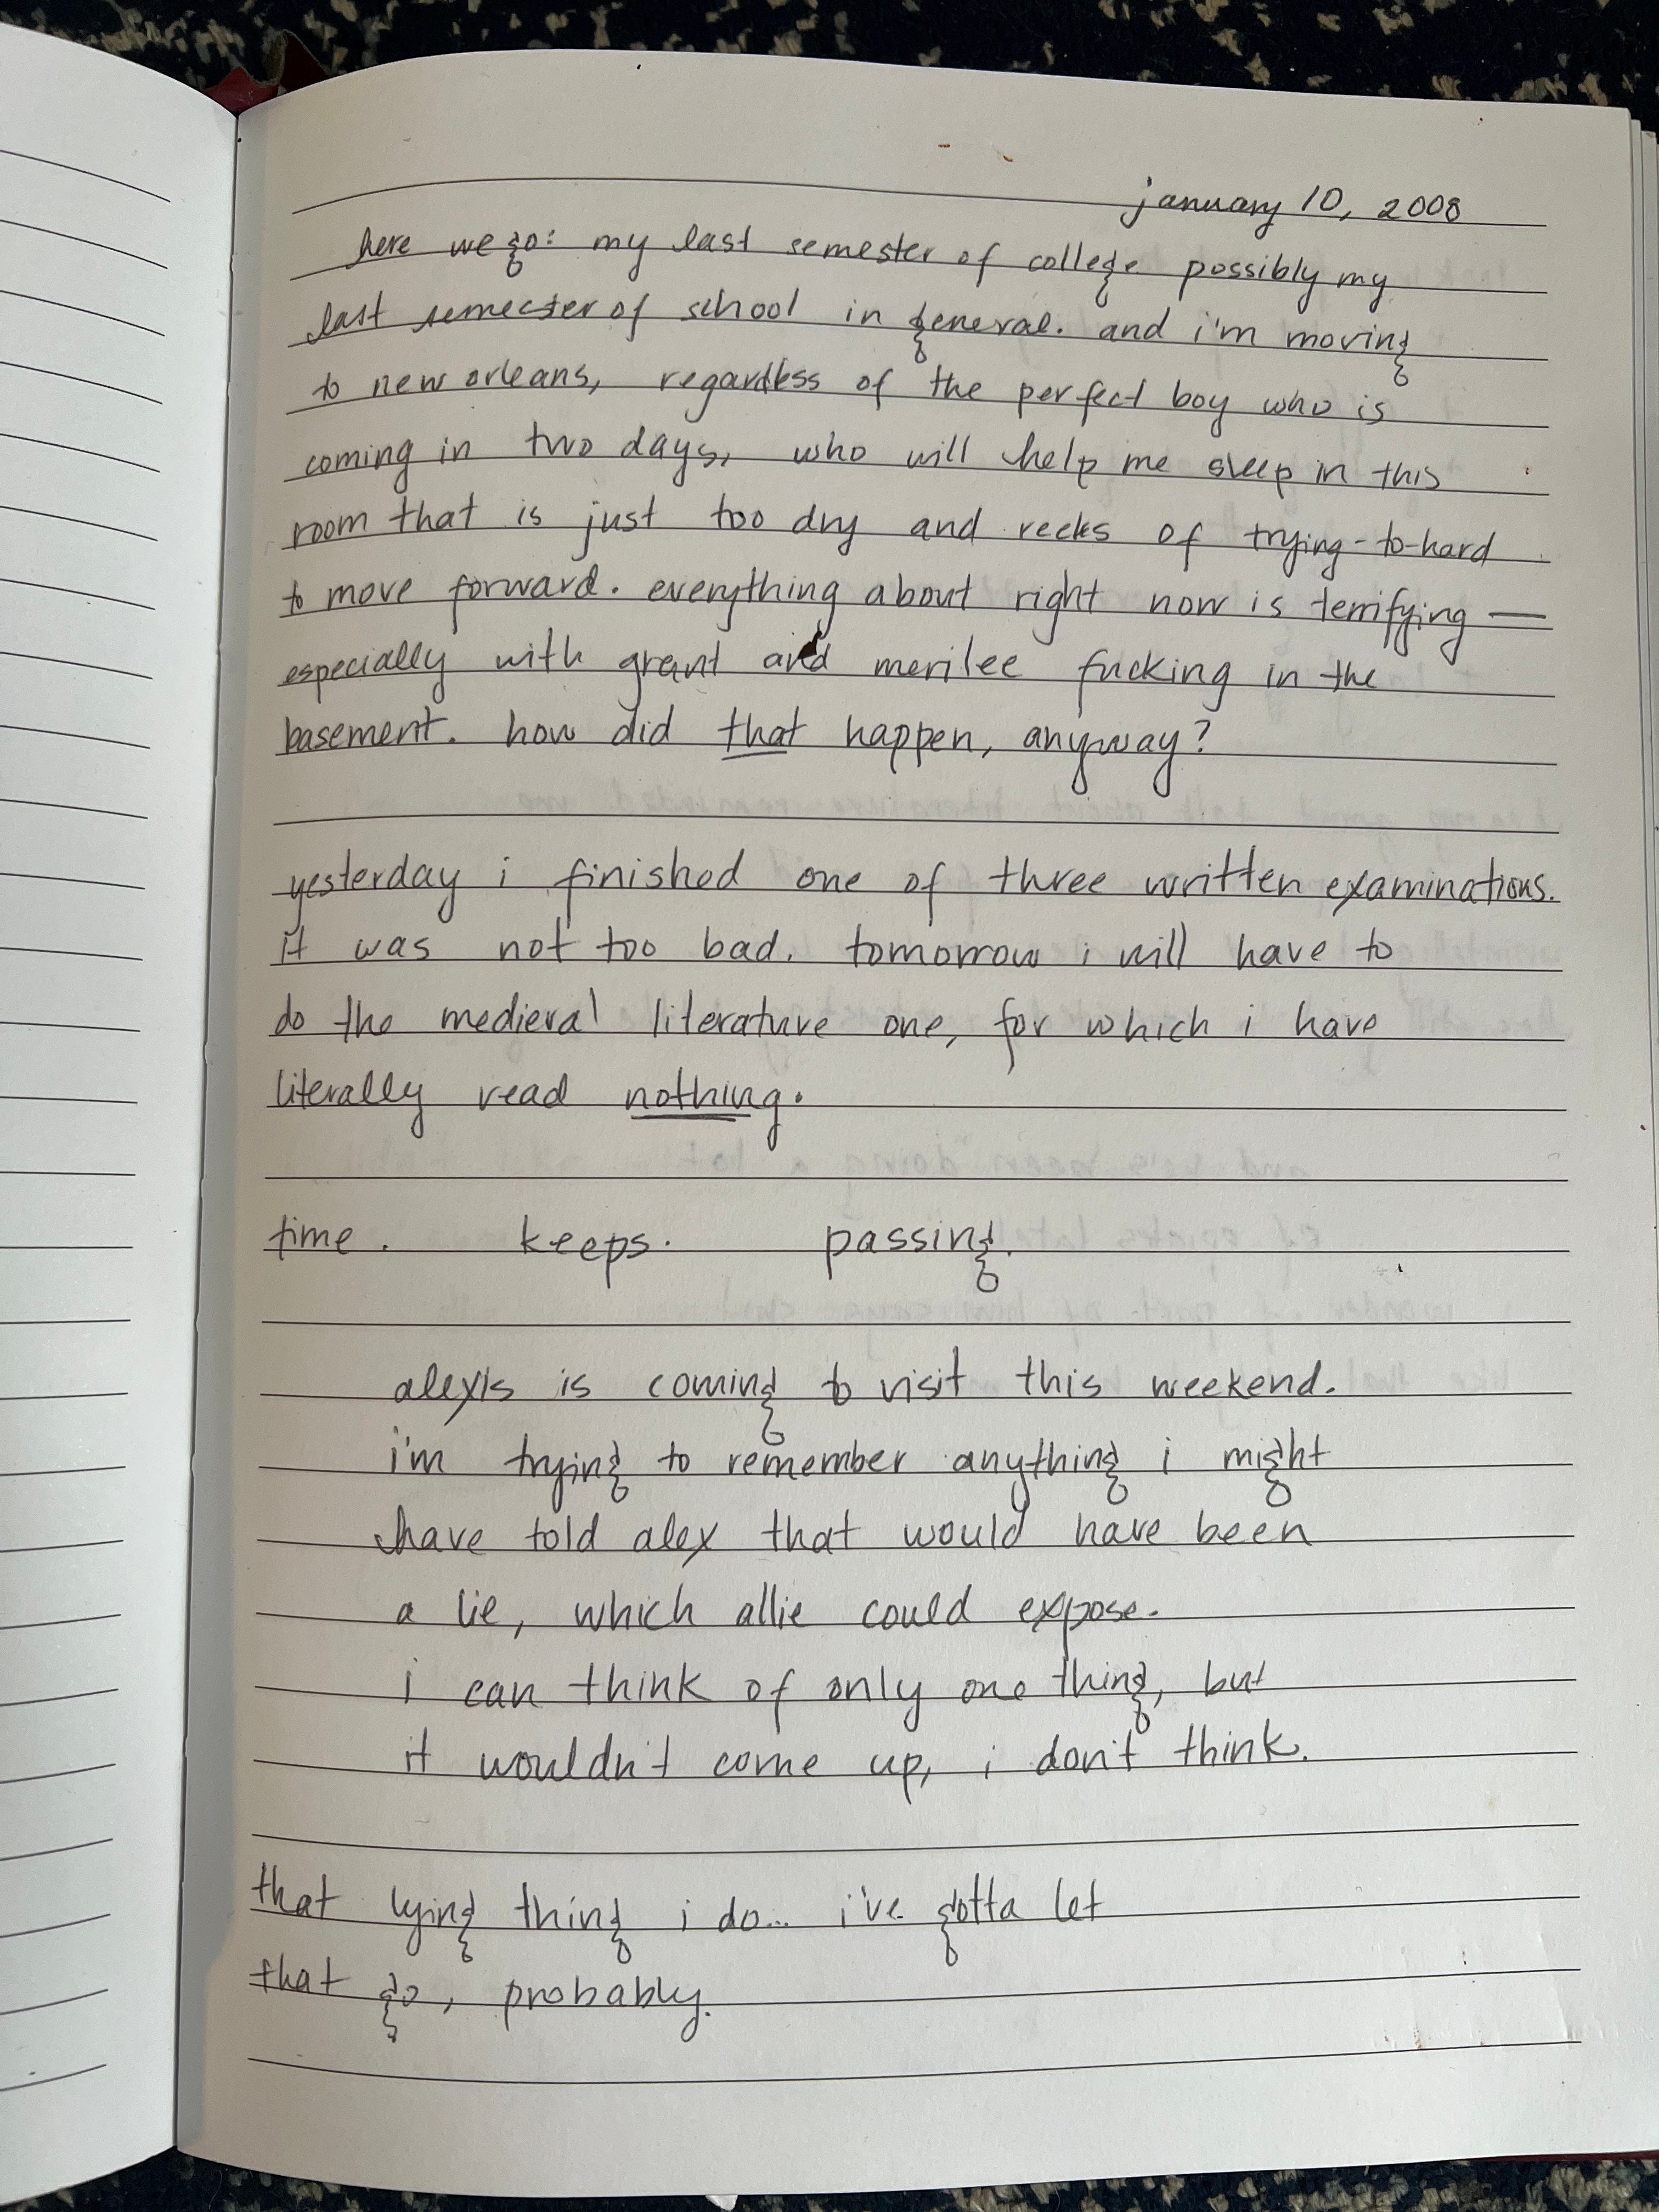 january 10, 2008
here we go: my last semester of college possibly my
last semester of school in general. and i'm moving
to new orleans, regardless of the perfect boy who is
coming in two days, who will help me sleep in this
room that is just too dry and reeks of trying-to-hard
to move forward. everything about right now is terrifying —
especially with grant and merilee fucking in the
basement. how did that happen, anyway?
yesterday i finished one of three written examinations.
it was not too bad. tomorrow i will have to
do the medieval literature one, for which i have
literally read nothing.
time. keeps. passing.
alexis is coming to visit this weekend.
i'm trying to remember anything i might
have told alex that would have been
a lie, which allie could expose.
i can think of only one thing, but
it wouldn't come up, i don't think.
that lying thing i do... i've gotta let
that go, probably.